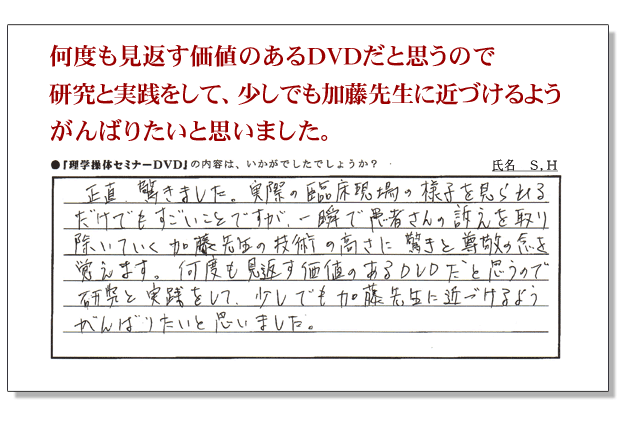 何度も見返す価値のあるDVDだと思うので
研究と実践をして、少しでも加藤先生に近づけるよう
がんばりたいと思いました。
●『理学操体セミナーDVD』の内容は、いかがでしたでしょうか？ 氏名 S.H
正直、驚きました。実際の臨床現場の様子を見られる
だけでもすごいことですが、一瞬で患者さんの訴えを取り
除いていく加藤先生の技術の高さに驚きと尊敬の念を
覚えます。何度も見返す価値のあるDVDだと思うので
研究と実践をして、少しでも加藤先生に近づけるよう
がんばりたいと思いました。